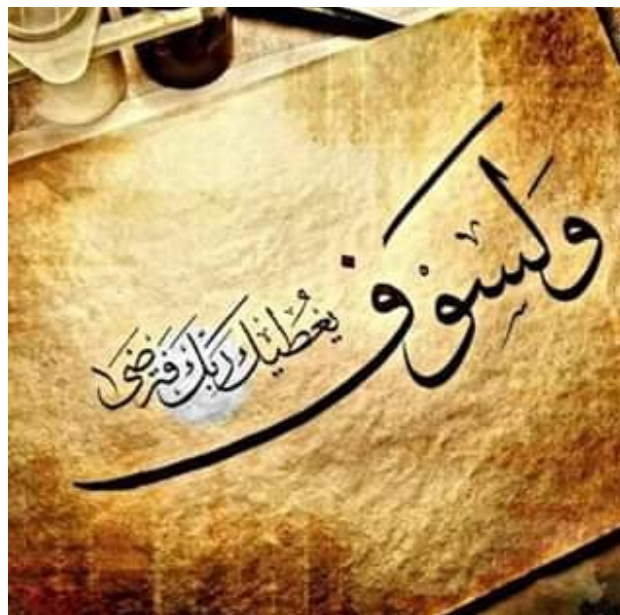 وَلَسوْف
يُعْطِيك رَبّك فَتَرضَىٰ